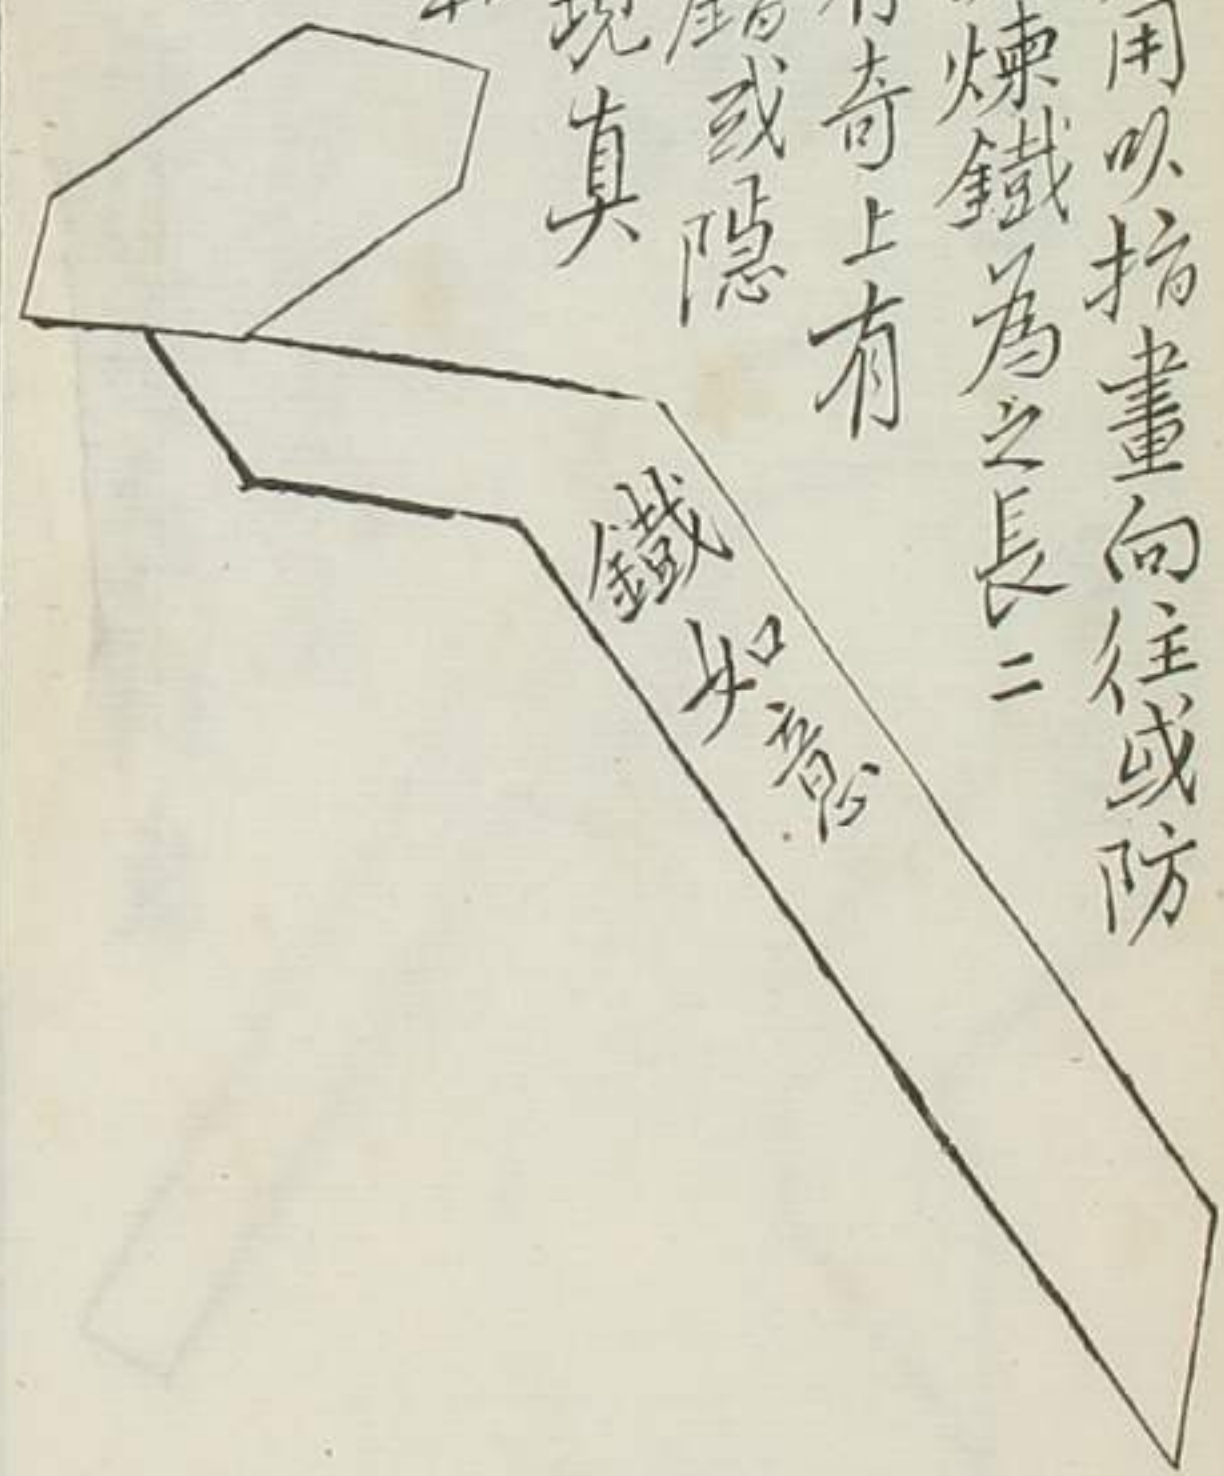 用以指畫向往或防
煉鐵為之長二
有奇上有
錯或隱
現真
鐵如意